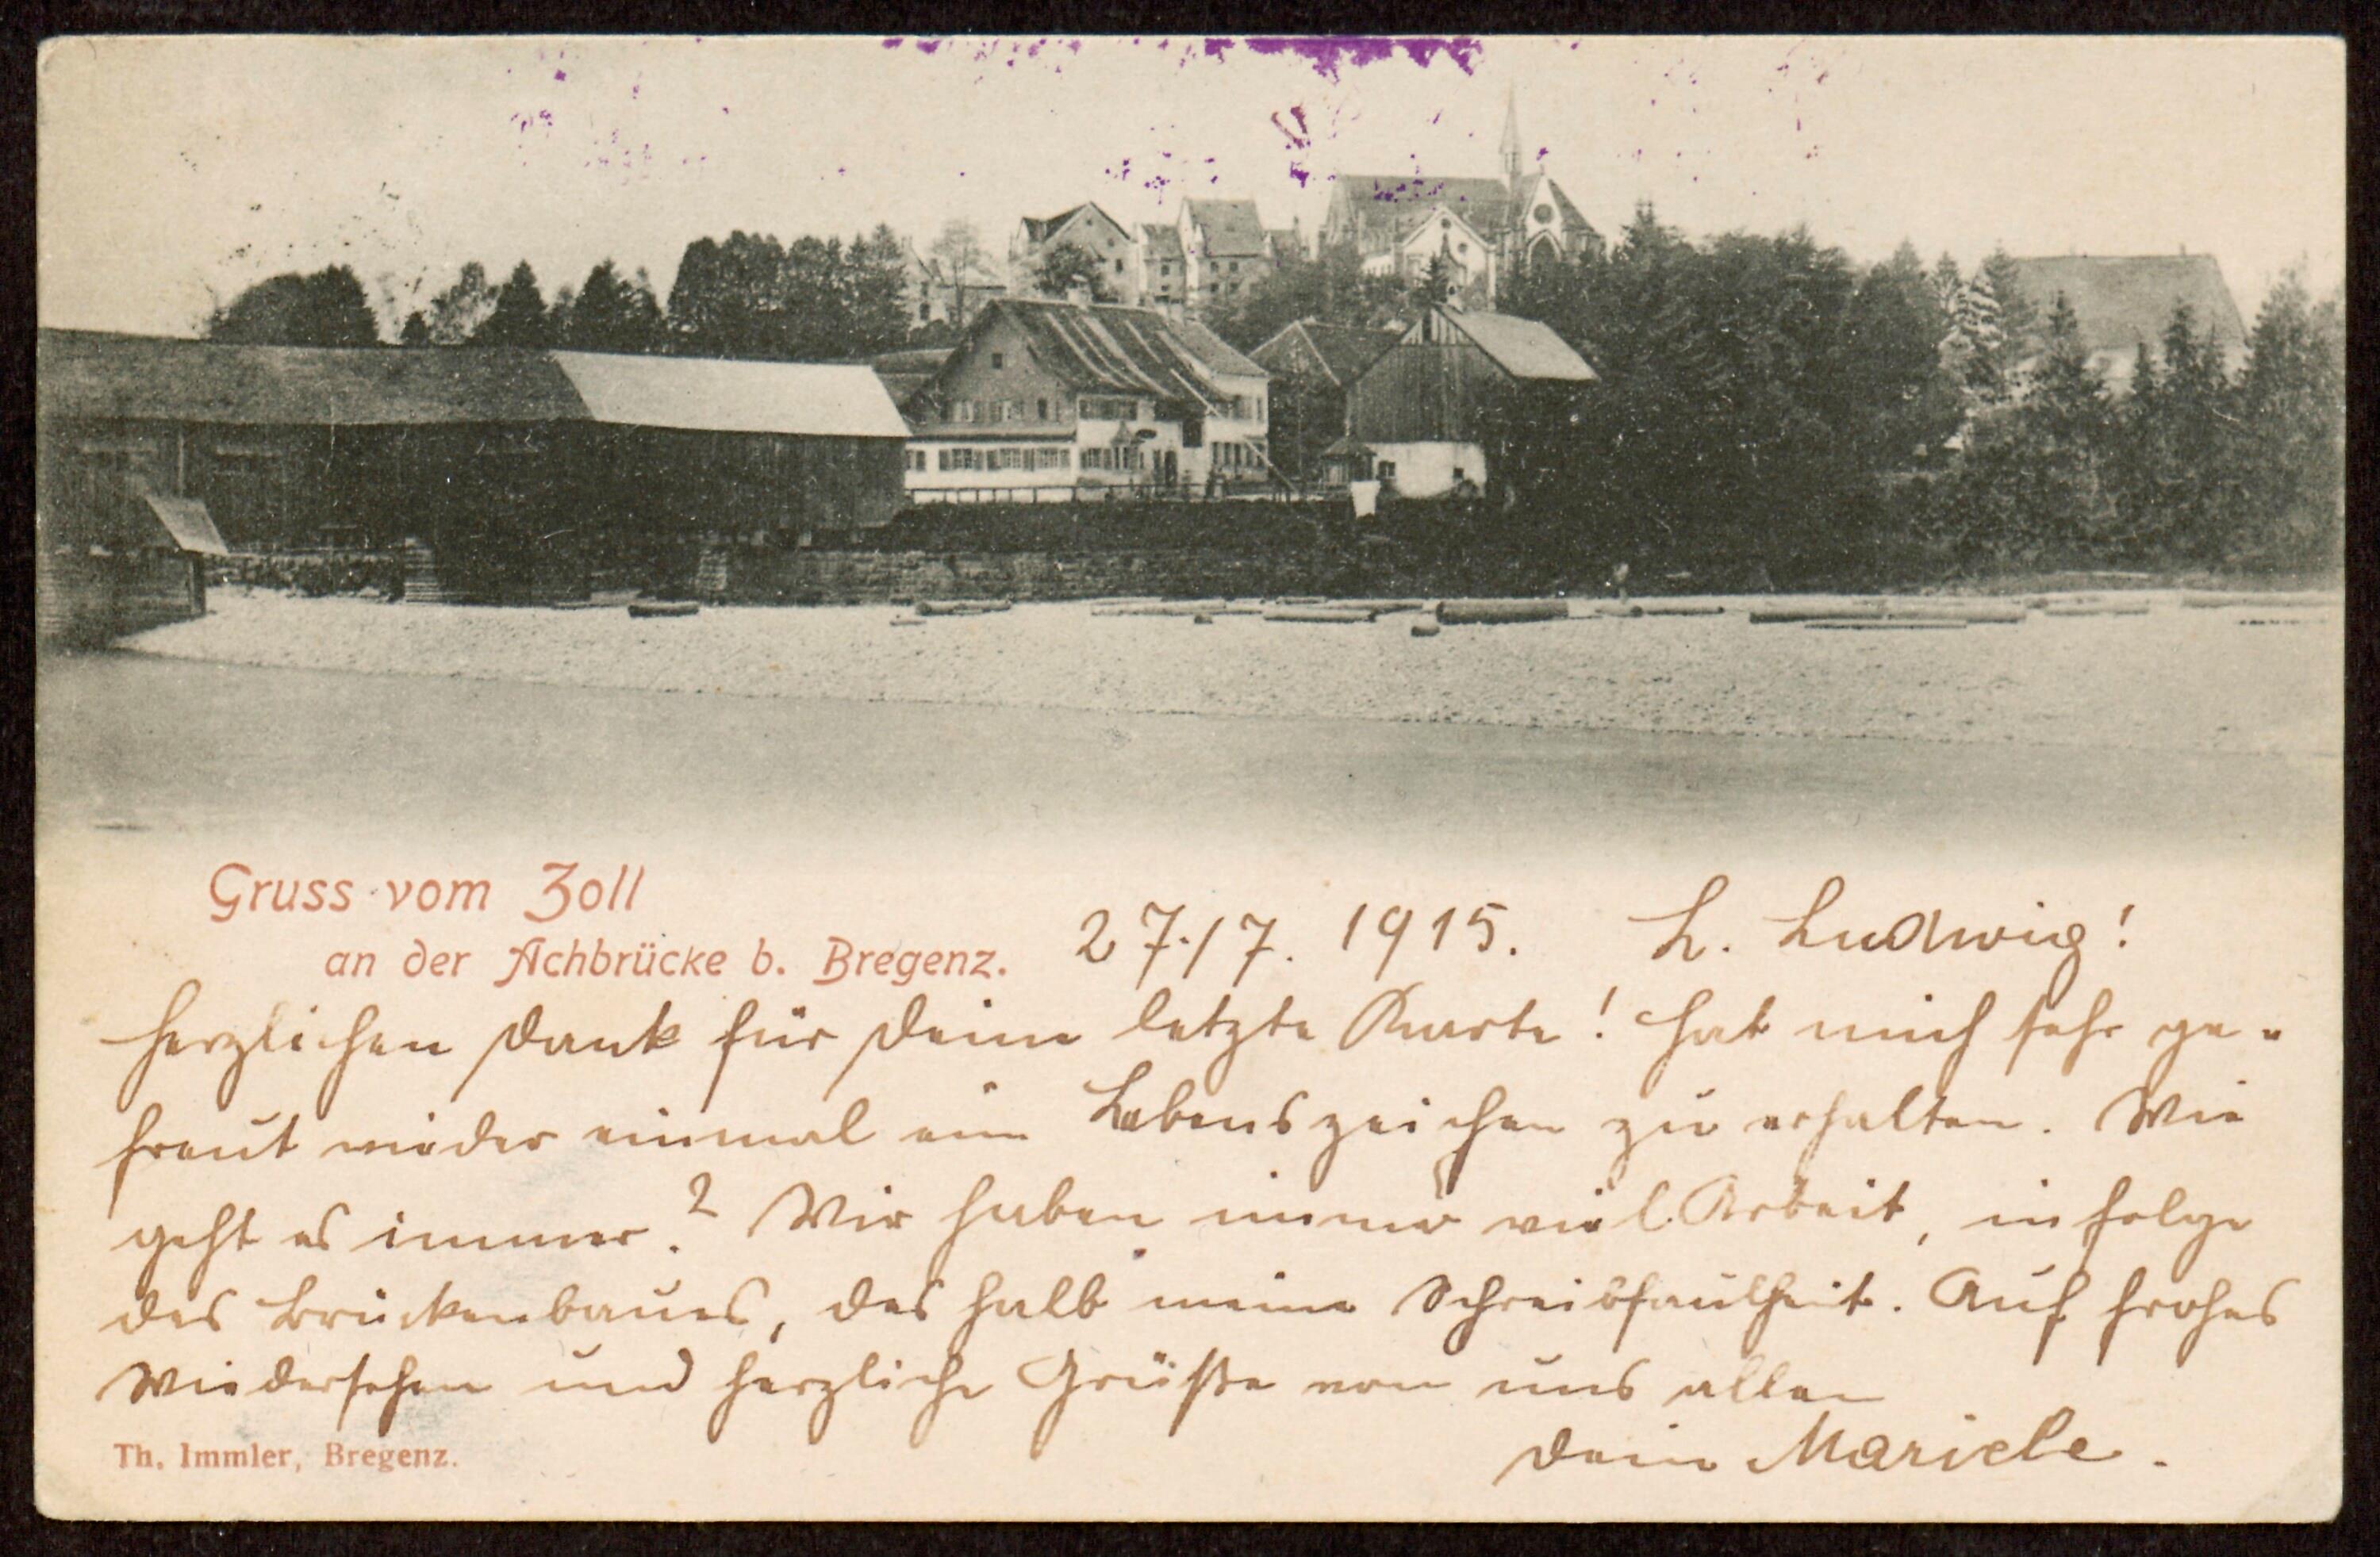 Gruss vom Zoll
an der Achbrücke b. Bregenz.
27./7. 1915. L. Ludwig!
Herzlichen Dank für Deine letzte Karte! Hat mich sehr ge-
freut wieder einmal ein Lebenszeichen zu erhalten. Wie
geht es immer? Wir haben immer viel Arbeit, infolge
des Brückenbaues, deshalb meine Schreibfaulheit. Auf frohes
Wiedersehen und herzliche Grüße von uns allen
Dein Mariele.
Th. Immler, Bregenz.